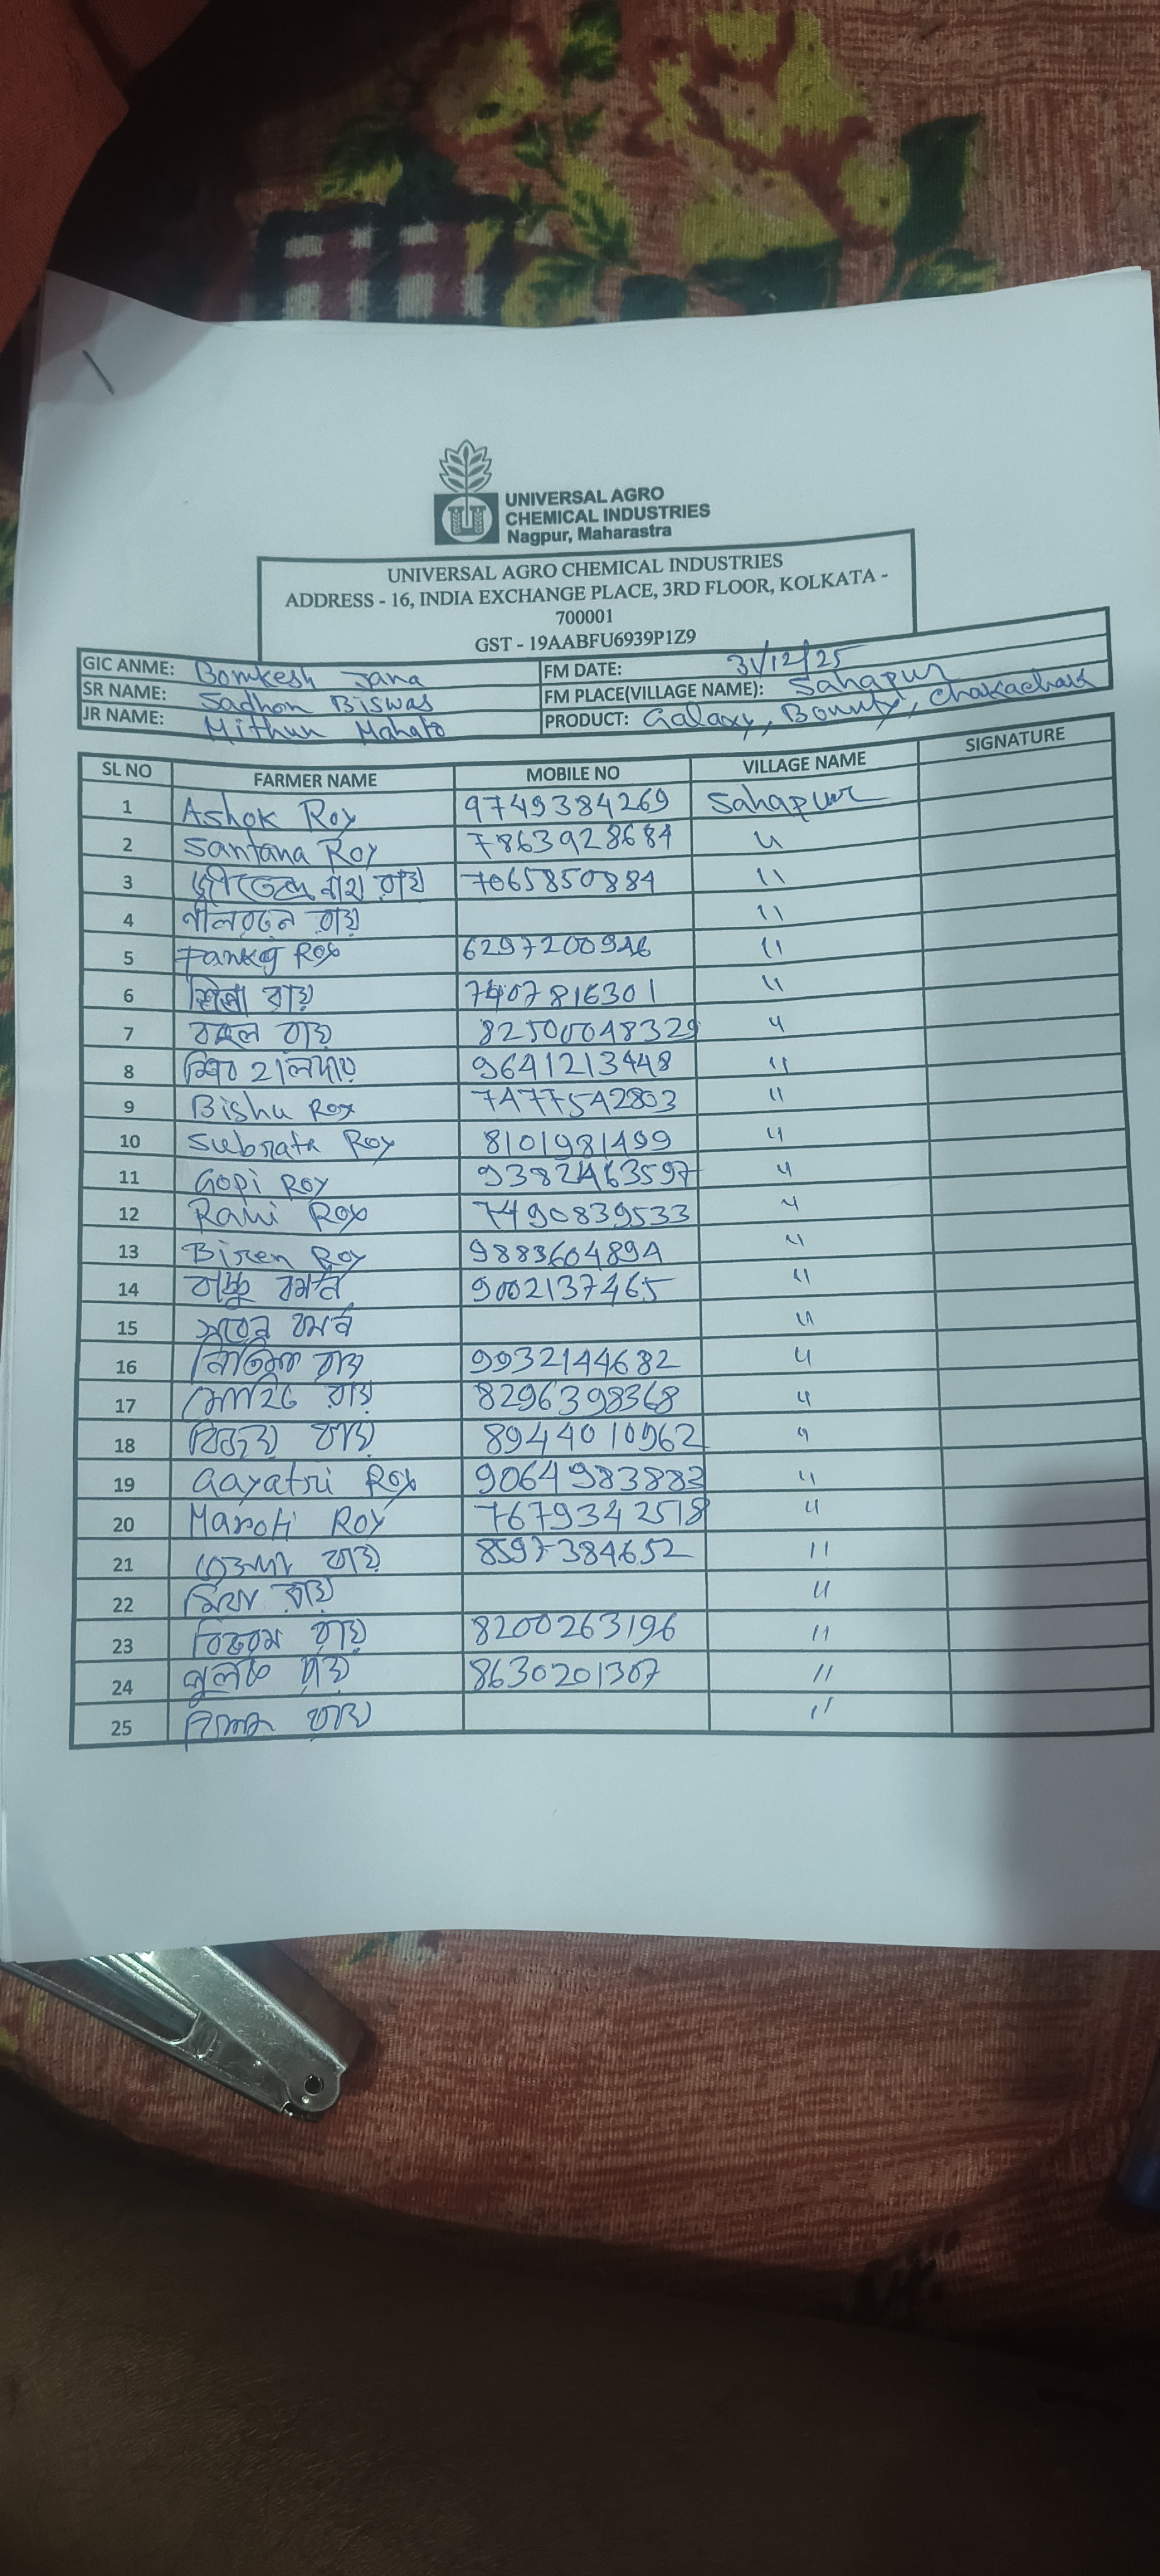 UNIVERSAL AGRO
CHEMICAL INDUSTRIES
Nagpur, Maharastra
UNIVERSAL AGRO CHEMICAL INDUSTRIES
ADDRESS - 16, INDIA EXCHANGE PLACE, 3RD FLOOR, KOLKATA -
700001
GST - 19AABFU6939P1Z9
GIC ANME: Bomkesh Jana FM DATE: 31/12/25
SR NAME: Sadhon Biswas FM PLACE(VILLAGE NAME): Sahapur
JR NAME: Mithun Mahato PRODUCT: Galaxy, Bounty,
SL NO FARMER NAME MOBILE NO VILLAGE NAME SIGNATURE
1 Ashok Roy 9749384269 Sahapur
2 Santana Roy 7863928684 "
3 রায় 7065850884 "
4 নীলরতন রায় "
5 Roy "
6 রায় "
7 রায় 82500048329 "
8 শিব হালদার 9641213448 "
9 Bishu Roy 7477542803 "
10 Subrata Roy 8101981499 "
11 Gopi Roy 9382463597 "
12 Roy 7490839533 "
13 Biren Roy 9883604894 "
14 বর্মন 9002137465 "
15 বর্মন "
16 রায় 9932144682 "
17 রায় 8296398368 "
18 বিজয় রায় 8944010962 "
19 Gayatri Roy 9064983883 "
20 Maroti Roy 7679342518 "
21 রায় 8597384652 "
22 রায় "
23 রায় 8200263196 "
24 রায় 8630201307 "
25 রায় "